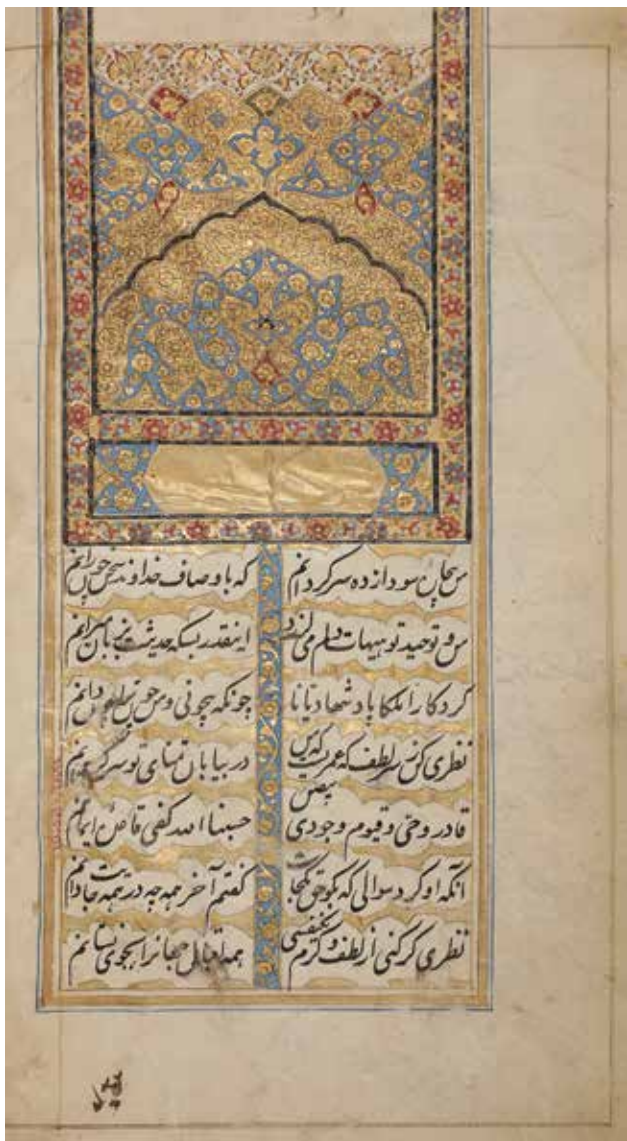 من بیجان سودازده سرگردانم که باوصاف خداوند سخن چون رانم
من و توحید تو هیهات دلم می لرزد اینقدر بسکه حدیثت بزبان میرانم
کردکارا ملکا پادشها دیانا چونکه بیچونی و من چونت دانم
نظری کن ز سر لطف که عمریست که من در بیابان تمنای تو سرگردانم
قادر و حی و قیوم وجودی حسبنا الله کفی
آنکه او کرد سوالی که بگو حق بکجاست گفتم آخر همه جه در بیت همه جا دانم
نظری گر کنی از لطف و کرم یکنفسی همه اقبال جهانرا بجوی نستانم